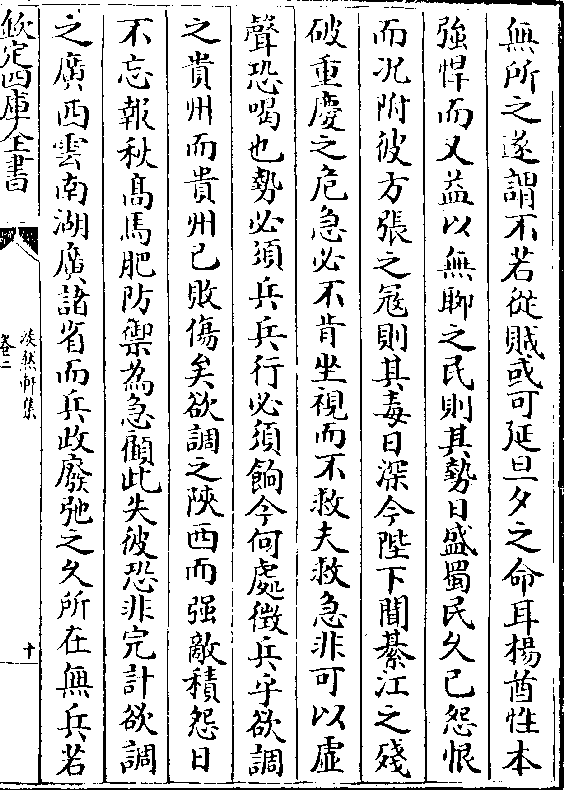 無所之遂謂不若從賊或可延旦夕之命耳楊酋性本
強悍而又益以無聊之民則其勢日盛蜀民久已怨恨
而况附彼方張之冦則其毒日深今陛下聞綦江之殘
破重慶之危急必不肯坐視而不救夫救急非可以虚
聲恐喝也勢必須兵兵行必須餉今何處徴兵乎欲調
之貴州而貴州已敗傷矣欲調之陜西而强敵積怨日
不忘報秋髙馬肥防禦為急顧此失彼恐非完計欲調
之廣西雲南湖廣諸省而兵政廢弛之久所在無兵若
欽定四庫全書
淡然軒集
卷二
十